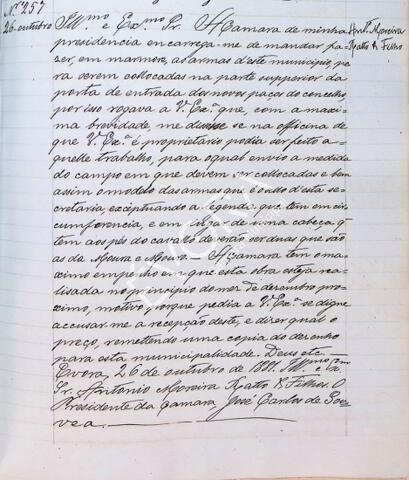 Nº 257
26 outubro
Antº Moreira
Ratto & Filho
Illmo e Exmo Sr. A Camara de minha
presidencia encarrega-me de mandar fa-
zer, em marmore, as armas d'este municipio, pa-
ra serem collocadas na parte superior da
porta de entrada dos novos paços do concelho,
por isso rogava a V. Exª que, com a maxi-
ma brevidade, me dissesse se na officina de
que V. Exª é proprietario podia ser feito a-
quelle trabalho, para o qual envio a medida
do campo em que devem ser collocadas e bem
assim o modelo das armas que é o do d'esta se-
cretaria, exceptuando a legenda que tem em cir-
cumferencia, e em lugar de uma cabeça q̃
tem aos pés do cavallo deverão ser duas que são
as da Moura e Mouro. — A Camara tem o ma-
ximo empenho em que esta obra esteja rea-
lisada no principio do mez de dezembro pro-
ximo, motivo porque pedia a V. Exª se digne
accusar-me a recepção deste, e dizer qual o
preço, remettendo uma copia do desenho
para esta municipalidade. Deus etc.
Evora, 26 de outubro de 1881. Illmo e Exmo
Sr. Antonio Moreira Ratto & Filhos. O
Presidente da Camara, José Carlos de Gou-
vea.